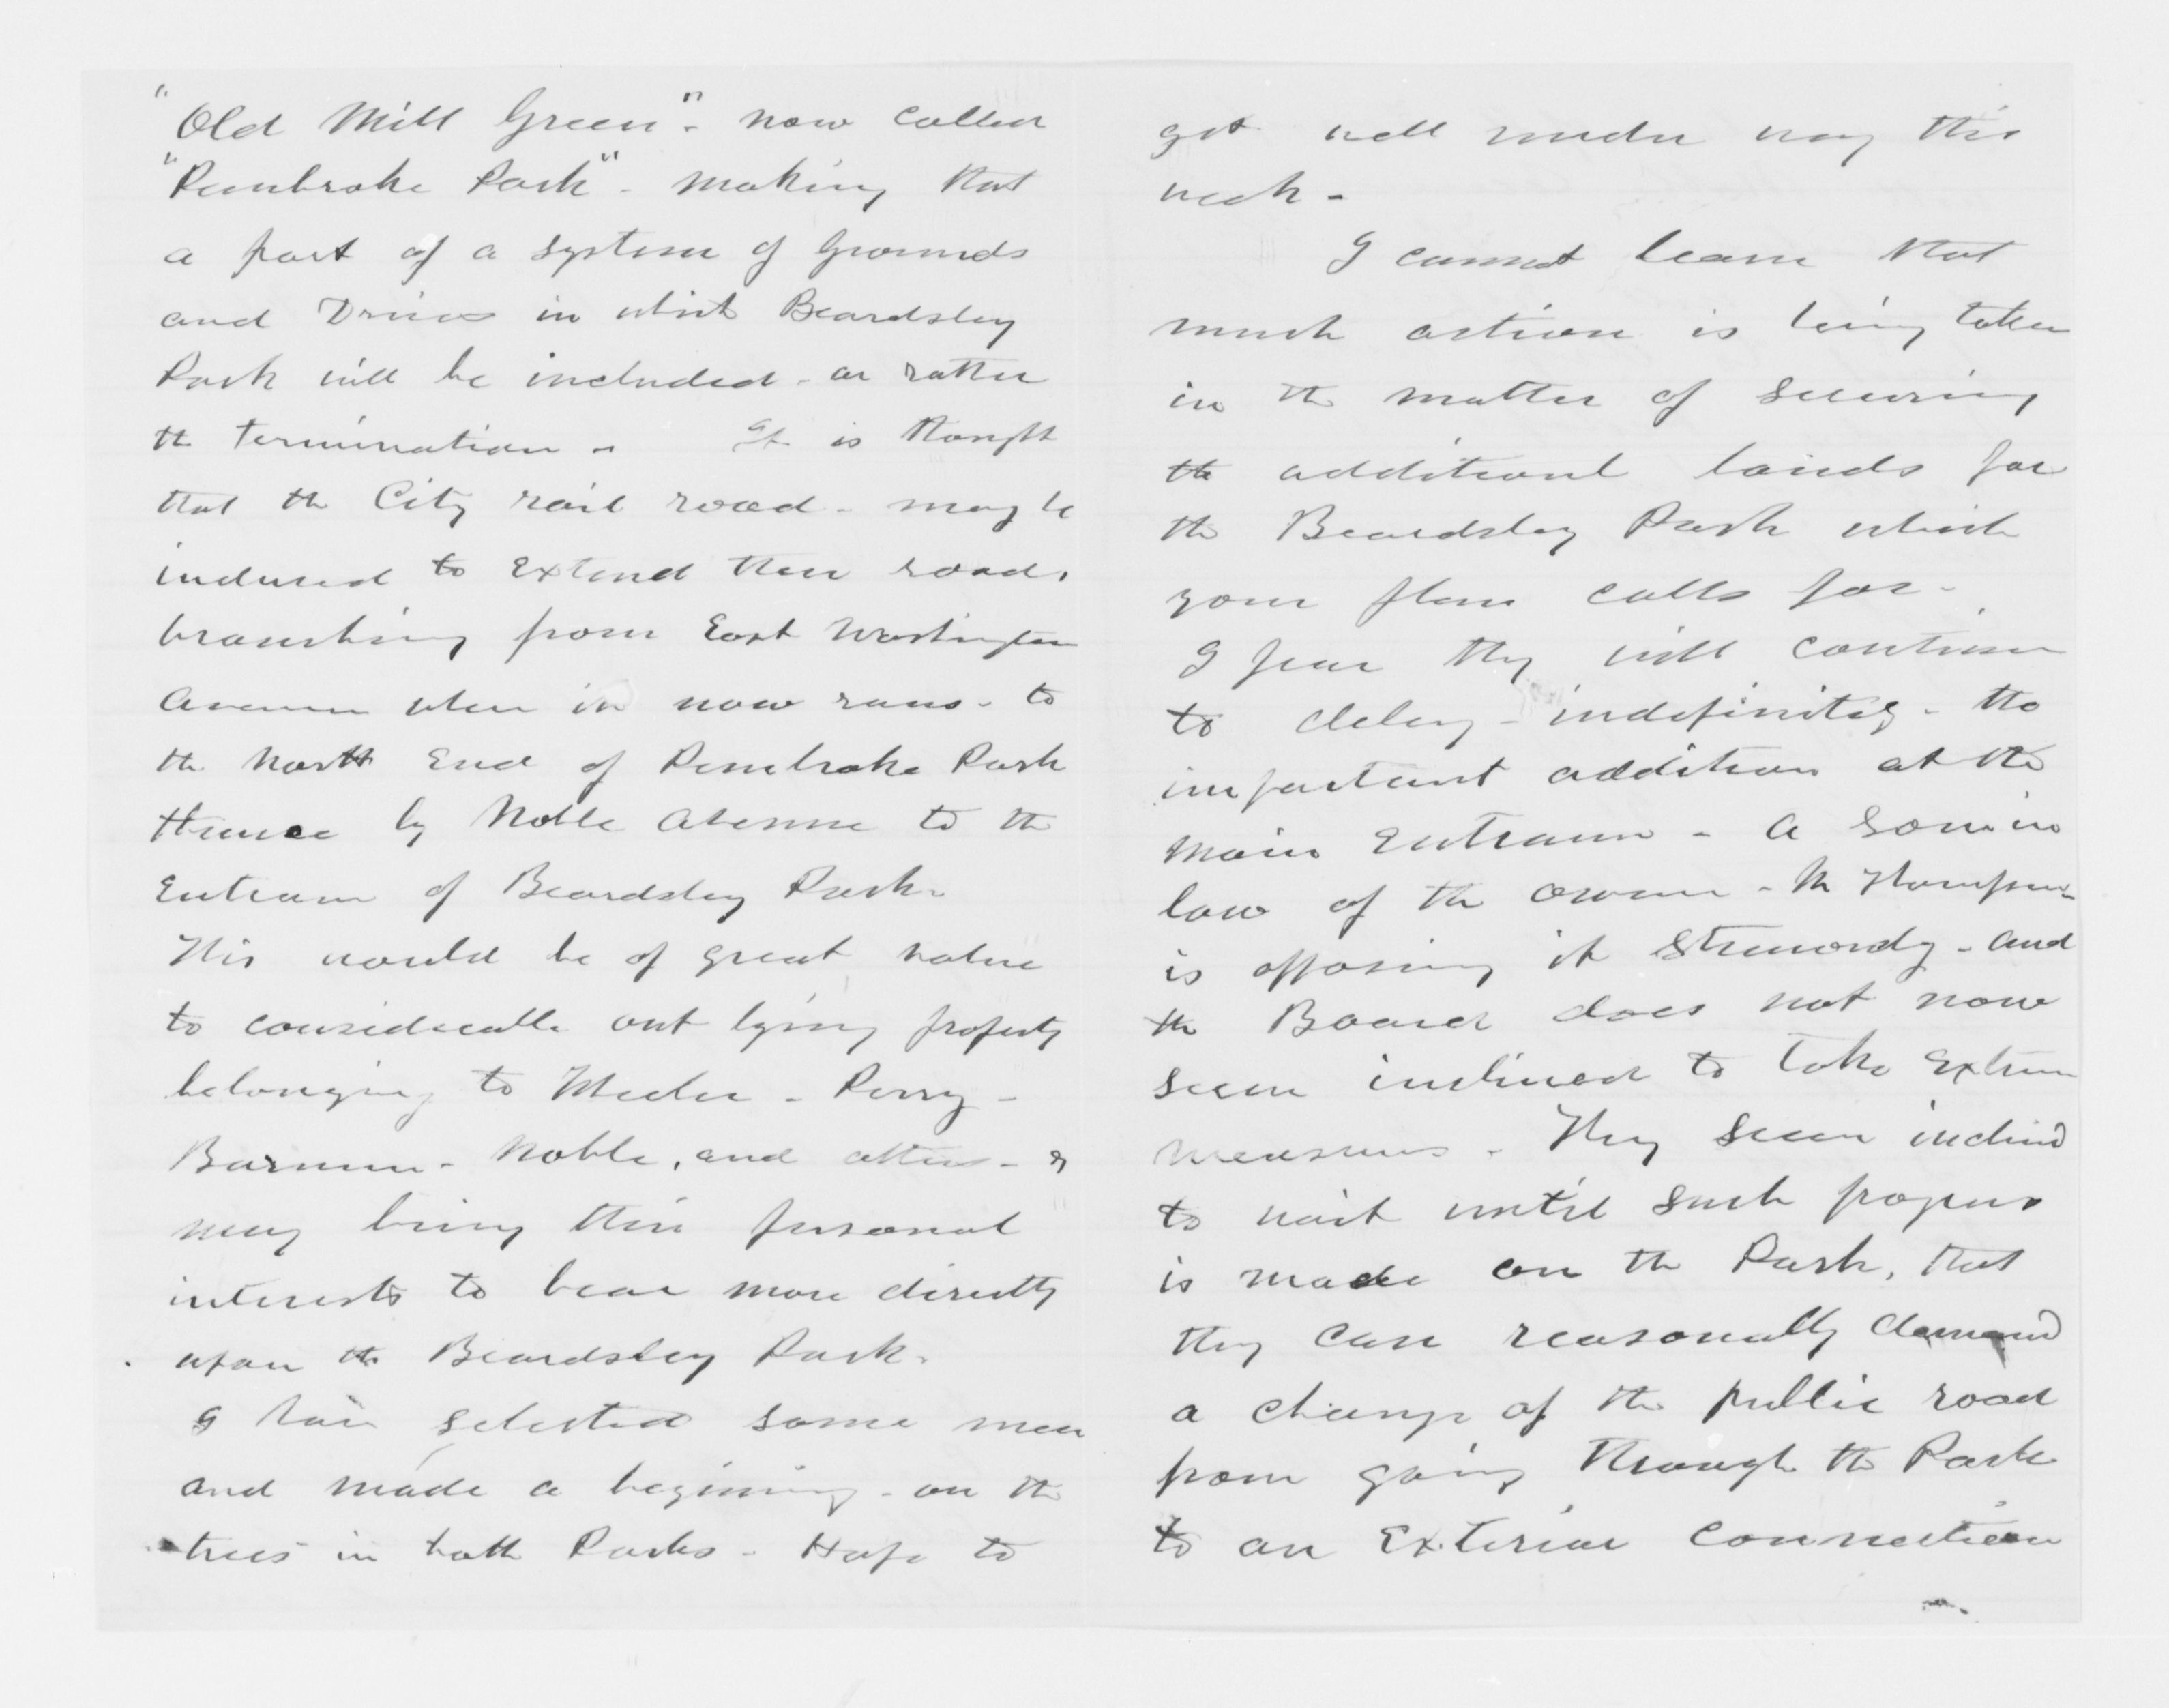 "Old Mill Green" - now called
"Pembroke Park" - making that
a part of a system of Grounds
and Drives in which Beardsley
Park will be included - or rather
the termination - It is thought
that the City rail road - may be
induced to Extend their road,
branching from East Washington
Avenue where it now runs - to
the North End of Pembroke Park
thence by Noble Avenue to the
Entrance of Beardsley Park -
This would be of great value
to considerable out lying property
belonging to Wheeler - Perry -
Barnum - Noble, and others - &
may bring their personal
interests to bear more directly
upon the Beardsley Park -
I have selected some men
and made a beginning - on the
trees in both Parks - Hope to
get well under way this
week -
I cannot learn that
much action is being taken
in the matter of securing
the additional lands for
the Beardsley Park which
your plan calls for -
I fear they will continue
to delay - indefinitely - the
important addition at the
main Entrance - A son in
law of the owner - Mr Thompson -
is opposing it strenuously - and
the Board does not now
seem inclined to take Extreme
measures - They seem inclined
to wait until such progress
is made on the Park, that
they can reasonably demand
a change of the public road
from going through the Park
to an Exterior connection